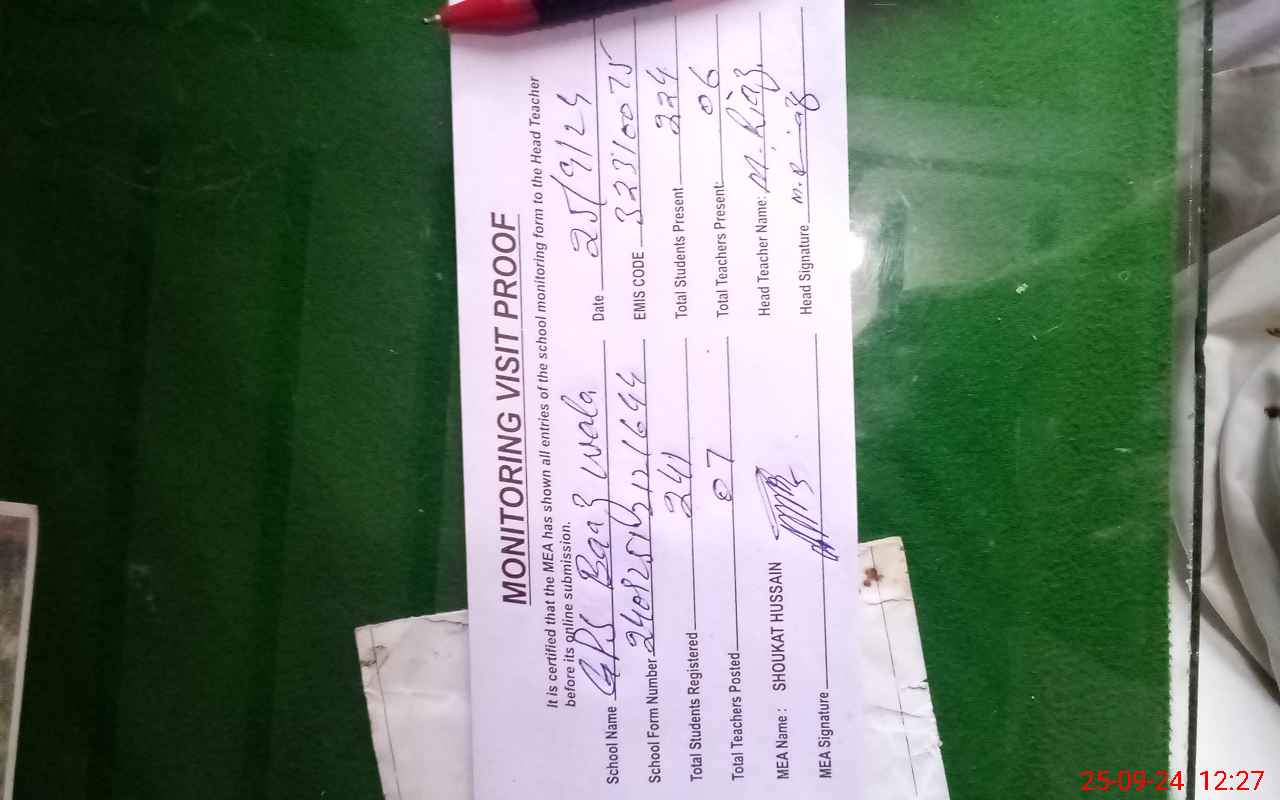 MONITORING VISIT PROOF
It is certified that the MEA has shown all entries of the school monitoring form to the Head Teacher
before its online submission.
School Name GPS Baaz wala Date 25/9/24
School Form Number EMIS CODE 32310075
Total Students Registered 241 Total Students Present 224
Total Teachers Posted 07 Total Teachers Present: 06
MEA Name : SHOUKAT HUSSAIN Head Teacher Name: M. Riaz
MEA Signature Head Signature M. Riaz
25-09-24 12:27